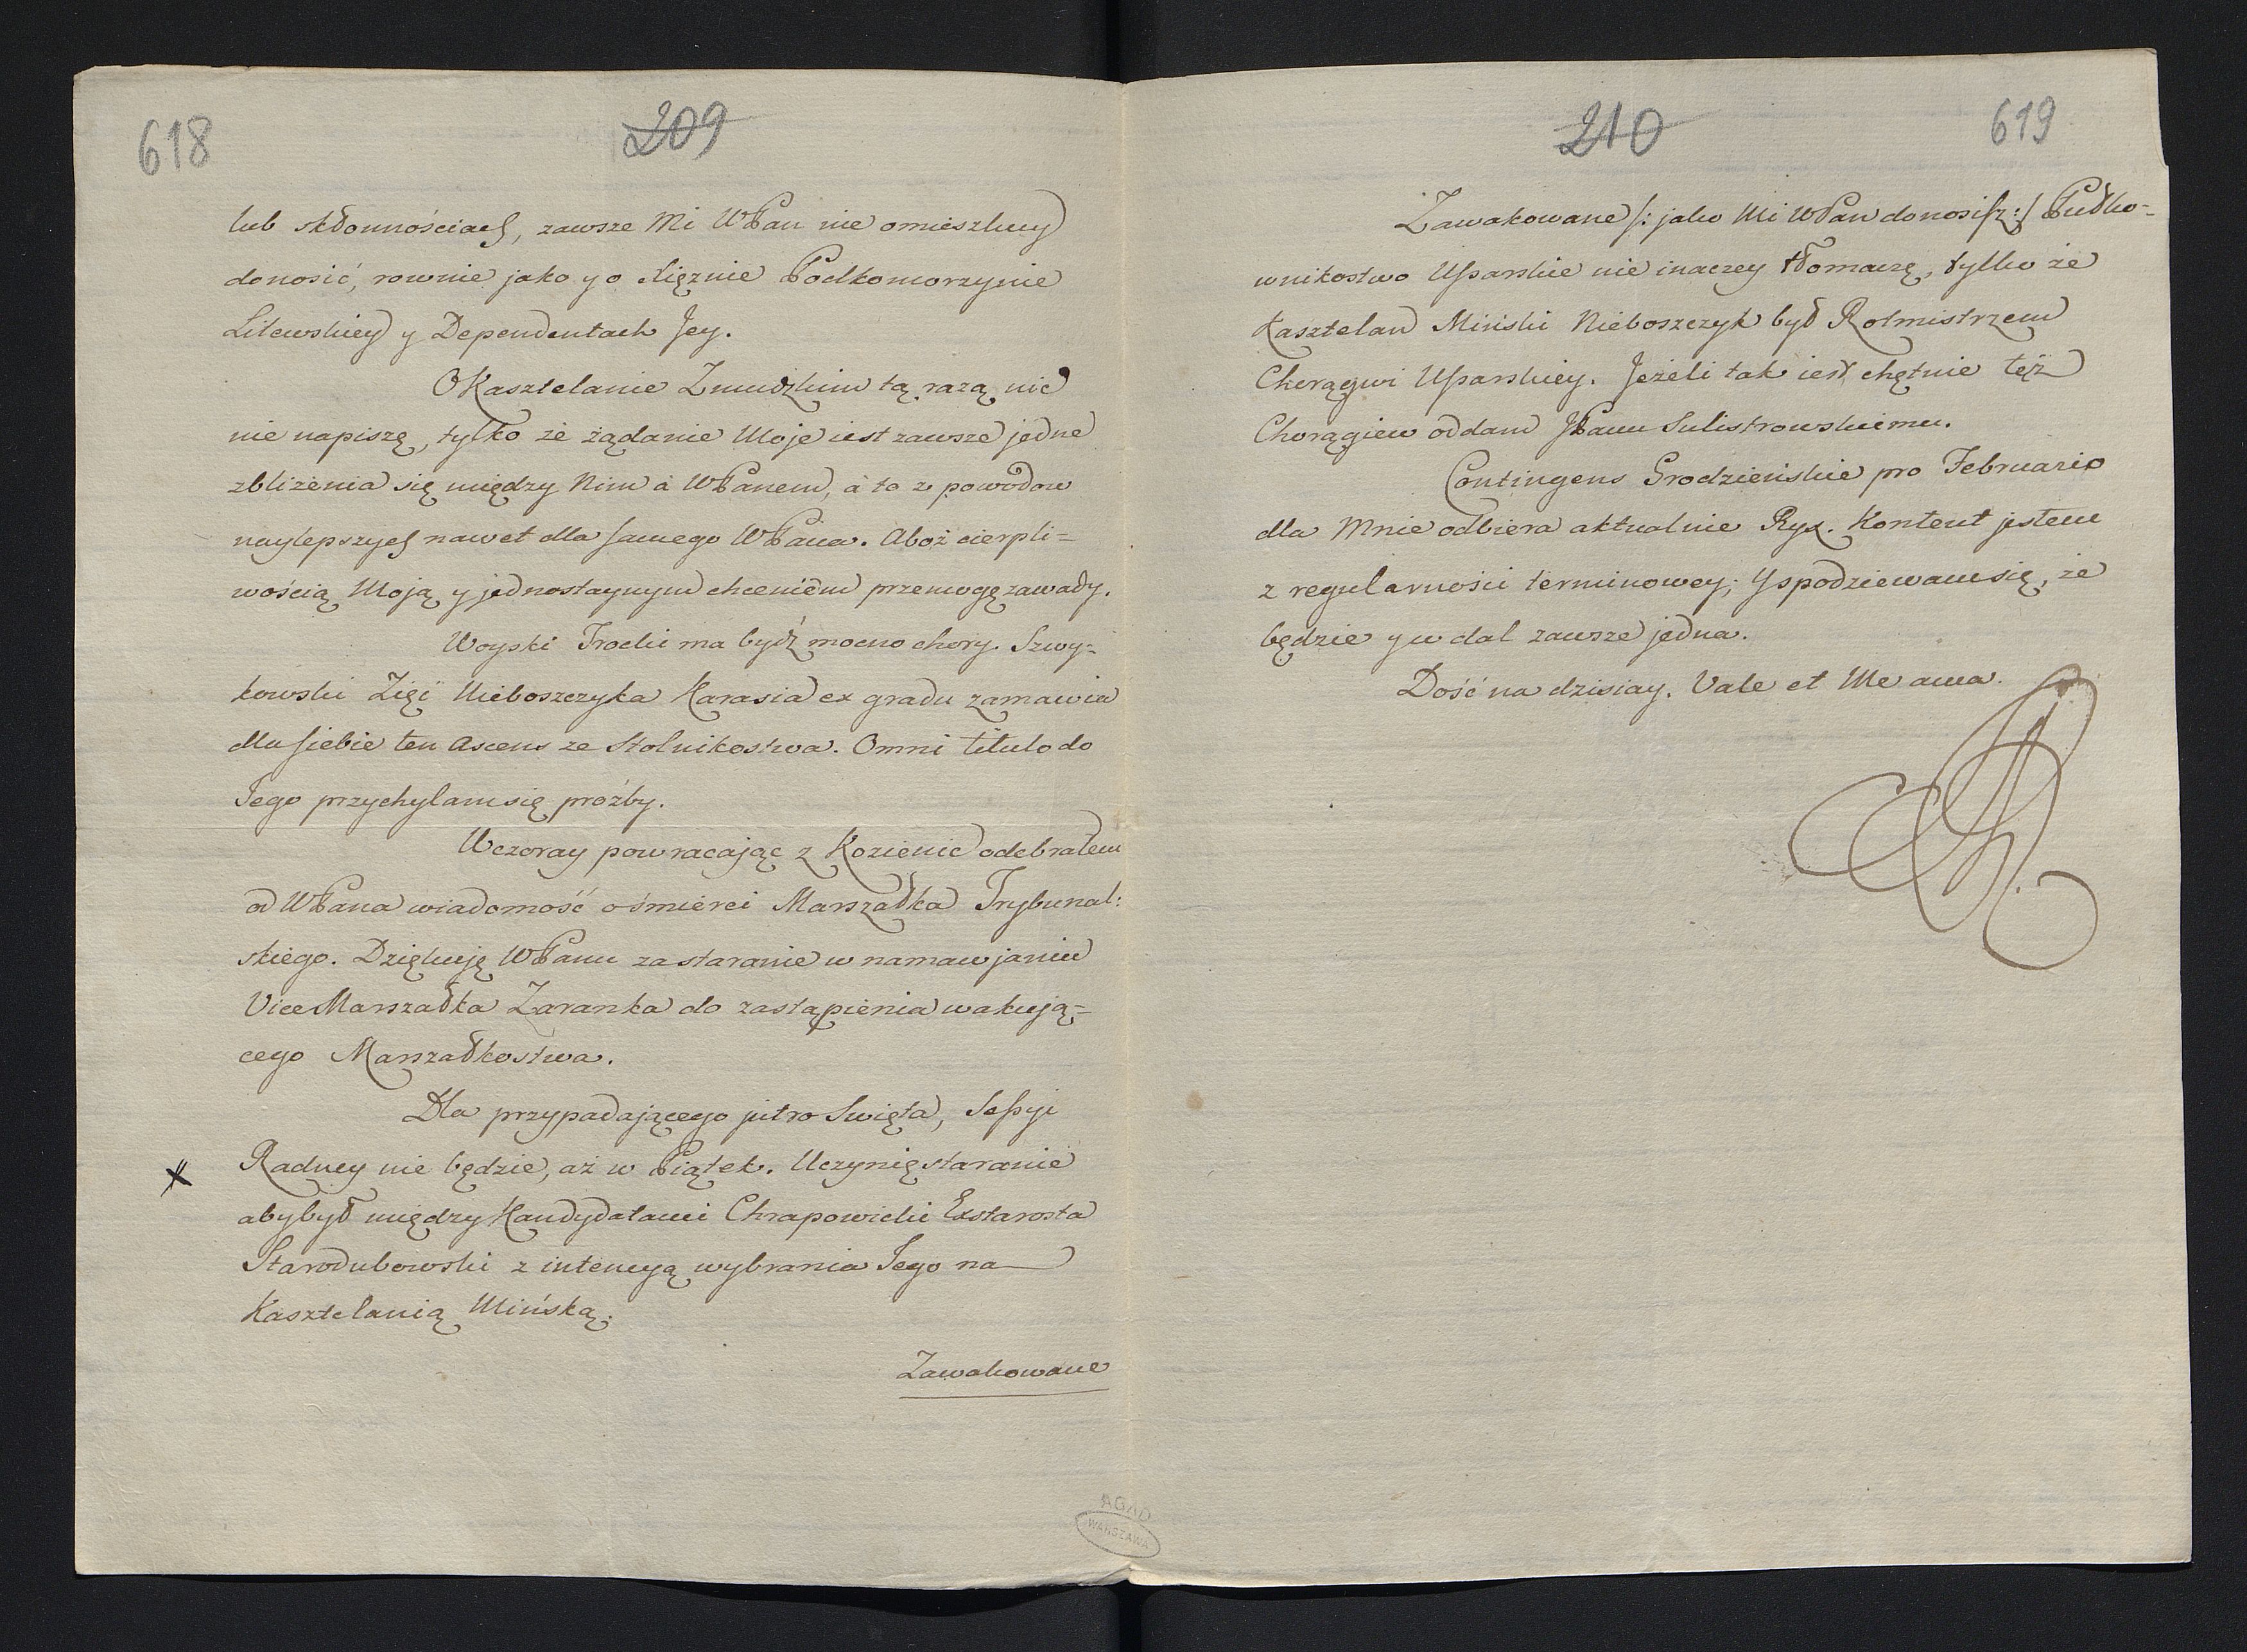 618
209
lub skłonnościach, zawsze Mi WPan nie omieszkuy
donosić, rownie jako y o Xiężnie Podkomorzynie
Litewskiey y Dependentach Jey.
O Kasztelanie Zmudzkim tą razą nic
nie napiszę, tylko że żądanie Moje iest zawsze jedne
zbliżenia się między Nim à WPanem, à to z powodow
naylepszych nawet dla samego WPana. Aboż cierpli=
wością Moją y jednostaynym chceniem przemogę zawady.
Woyski Trocki ma bydź mocno chory. Szwy=
kowski Zięć Nieboszczyka Karasia ex gradu zamawia
dla siebie ten Ascens ze Stolnikostwa. Omni titulo do
Jego przychylam się prożby.
Wczoray powracając z Kozienic odebrałem
od WPana wiadomość o śmierci Marszałka Trybunal:
skiego. Dziękuję WPanu za staranie w namawjaniu
Vice Marszałka Zaranka do zastąpienia wakują=
cego Marszałkostwa.
Dla przypadającego jutro Swięta, Sessyi
Radney nie będzie, aż w Piątek. Uczynię staranie
aby był między Kandydatami Chrapowicki Exstarosta
Starodubowski z intencyą wybrania Jego na
Kasztelanią Mińską.
Zawakowane
210
619
Zawakowane /: jako Mi WPan donosisz :/ Pułko=
wnikostwo Usarskie nie inaczey tłomaczę, tylko że
Kasztelan Miński Nieboszczyk był Rotmistrzem
Chorągwi Usarskiey. Jeżeli tak iest chętnie tęż
Chorągiew oddam JPanu Sulistrowskiemu.
Contingens Grodzieńskie pro Februario
dla Mnie odbiera aktualnie Ryx. Kontent jestem
z regularności terminowey; y spodziewam się, że
będzie y w dal zawsze jedna.
Dość na dzisiay. Vale et Me ama.
AGAD
WARSZAWA